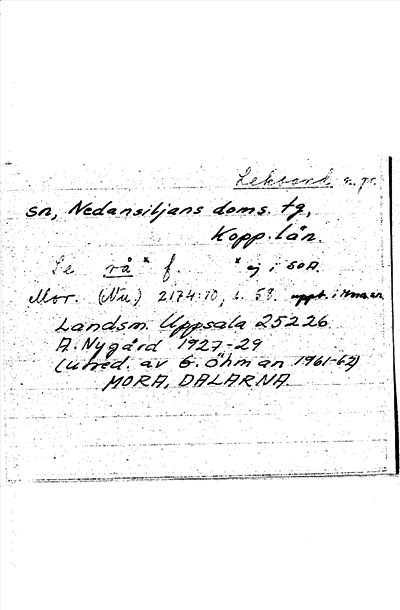 Leksand
sn, Nedansiljans doms. tg,
Kopp. län.
Se rå x f. x ej i SOA.
Mor. (Nu.) 2174:10, s. 59. uppt. i
Landsm. Uppsala 25226
A. Nygård 1927-29
(utred. av G. Öhman 1961-62)
MORA, DALARNA.